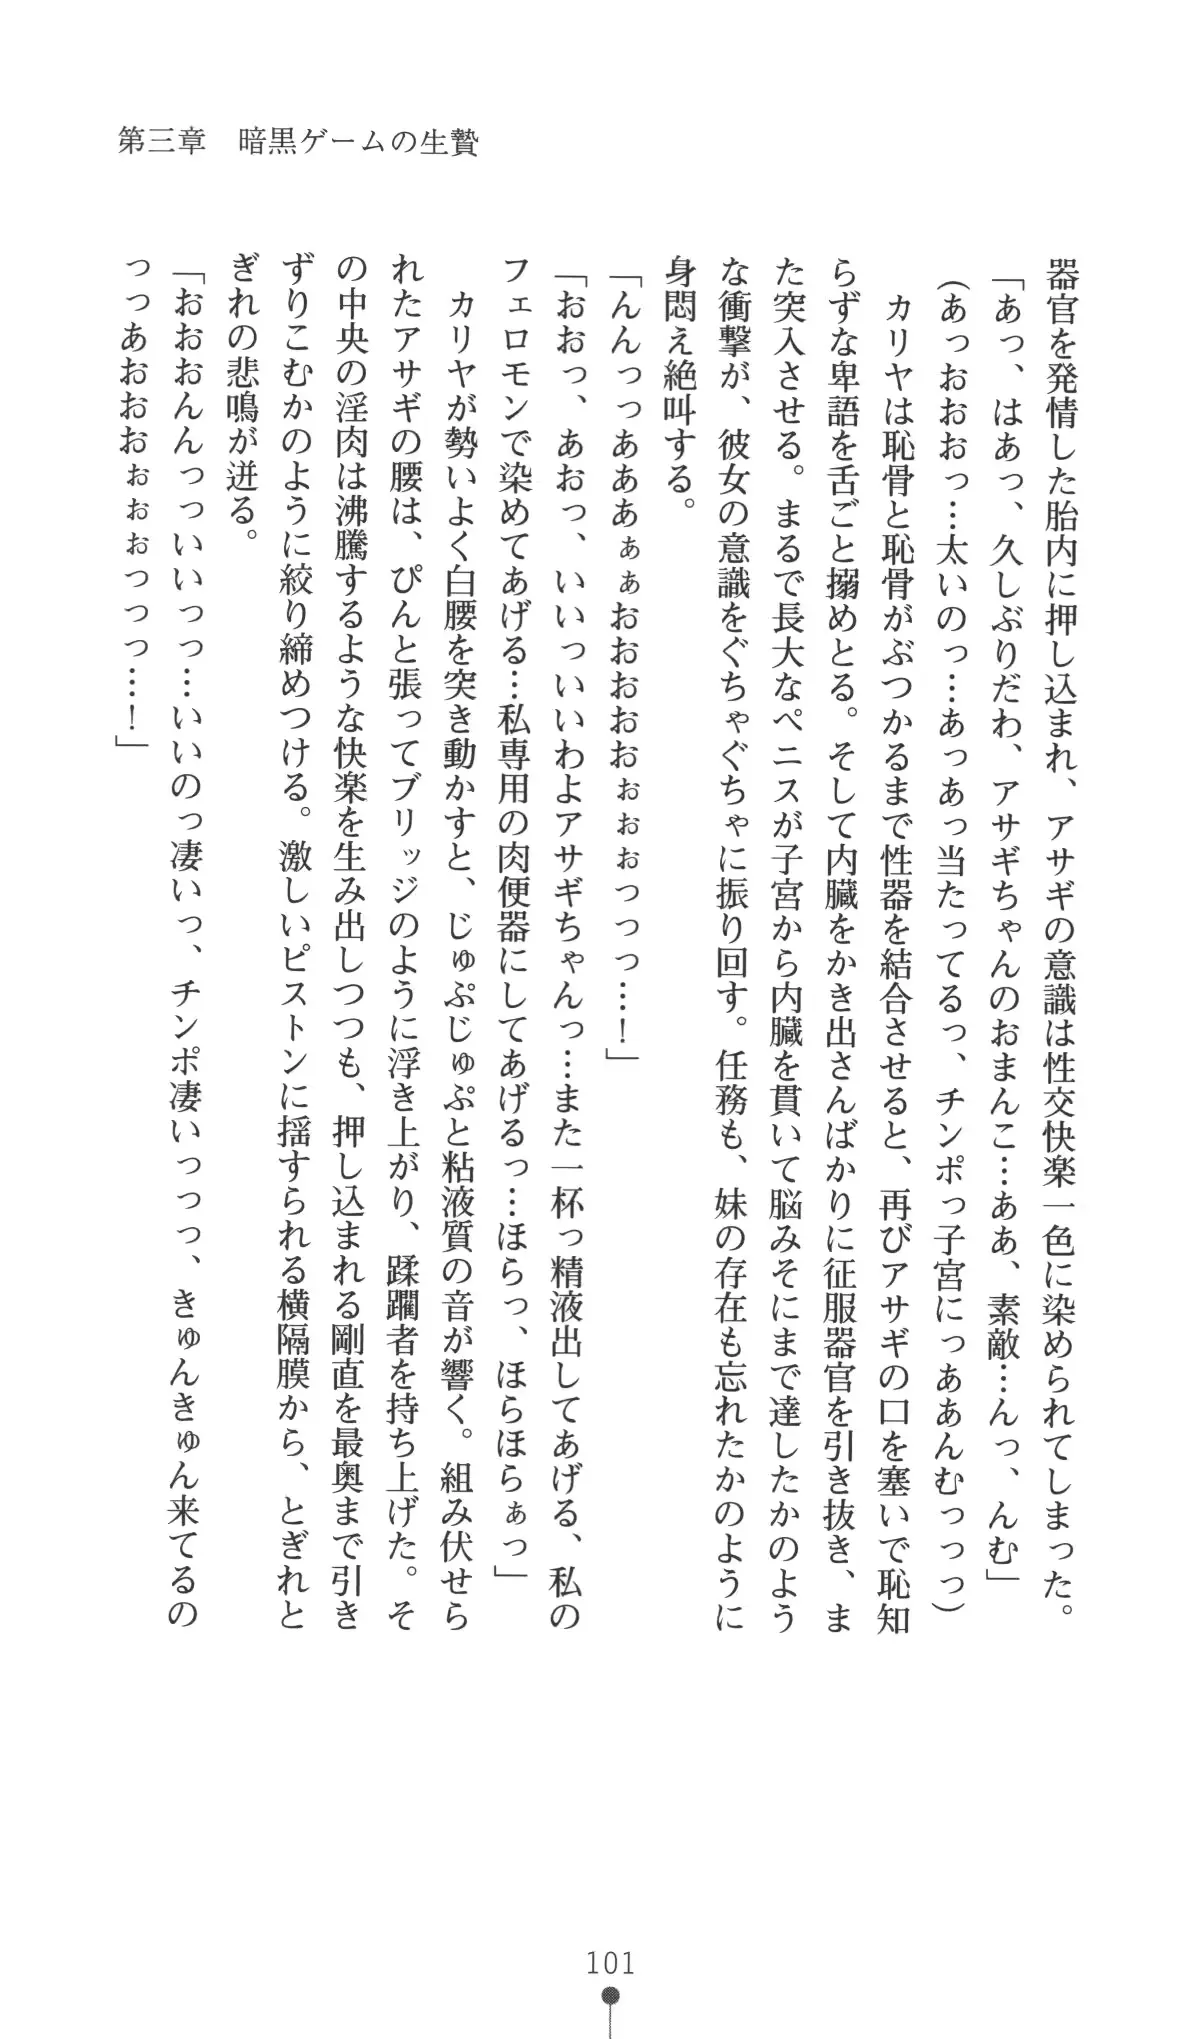 第三章　暗黒ゲームの生贄
器官を発情した胎内に押し込まれ、アサギの意識は性交快楽一色に染められてしまった。
「あっ、はあっ、久しぶりだわ、アサギちゃんのおまんこ…ああ、素敵…んっ、んむ」
(あっおおっ…太いのっ…あっあっ当たってるっ、チンポっ子宮にっああんむっっっ)
　カリヤは恥骨と恥骨がぶつかるまで性器を結合させると、再びアサギの口を塞いで恥知
らずな卑語を舌ごと搦めとる。そして内臓をかき出さんばかりに征服器官を引き抜き、ま
た突入させる。まるで長大なペニスが子宮から内臓を貫いて脳みそにまで達したかのよう
な衝撃が、彼女の意識をぐちゃぐちゃに振り回す。任務も、妹の存在も忘れたかのように
身悶え絶叫する。
「んんっっあああぁぁおおおおぉぉぉっっっ…!」
「おおっ、あおっ、いいっいいわよアサギちゃんっ…また一杯っ精液出してあげる、私の
フェロモンで染めてあげる…私専用の肉便器にしてあげるっ…ほらっ、ほらほらぁっ」
　カリヤが勢いよく白腰を突き動かすと、じゅぷじゅぷと粘液質の音が響く。組み伏せら
れたアサギの腰は、ぴんと張ってブリッジのように浮き上がり、蹂躙者を持ち上げた。そ
の中央の淫肉は沸騰するような快楽を生み出しつつも、押し込まれる剛直を最奥まで引き
ずりこむかのように絞り締めつける。激しいピストンに揺すられる横隔膜から、とぎれと
ぎれの悲鳴が迸る。
「おおおんんっっいいっっ…いいのっ凄いっ、チンポ凄いっっっ、きゅんきゅん来てるの
っっあおおおぉぉぉっっっ…!」
101